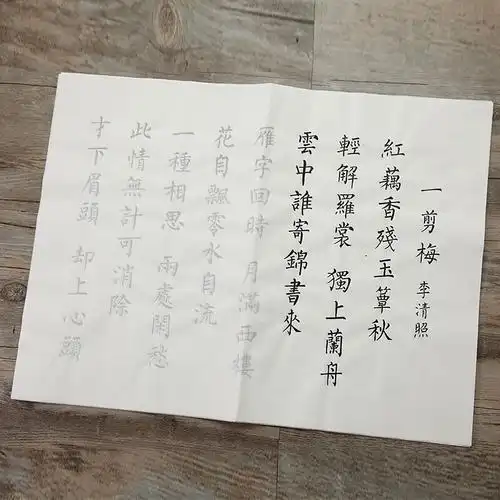 一剪梅 李清照
紅藕香殘玉簟秋
輕解羅裳 獨上蘭舟
雲中誰寄錦書來
雁字回時 月滿西樓
花自飄零水自流
一種相思 兩處閑愁
此情無計可消除
才下眉頭 却上心頭